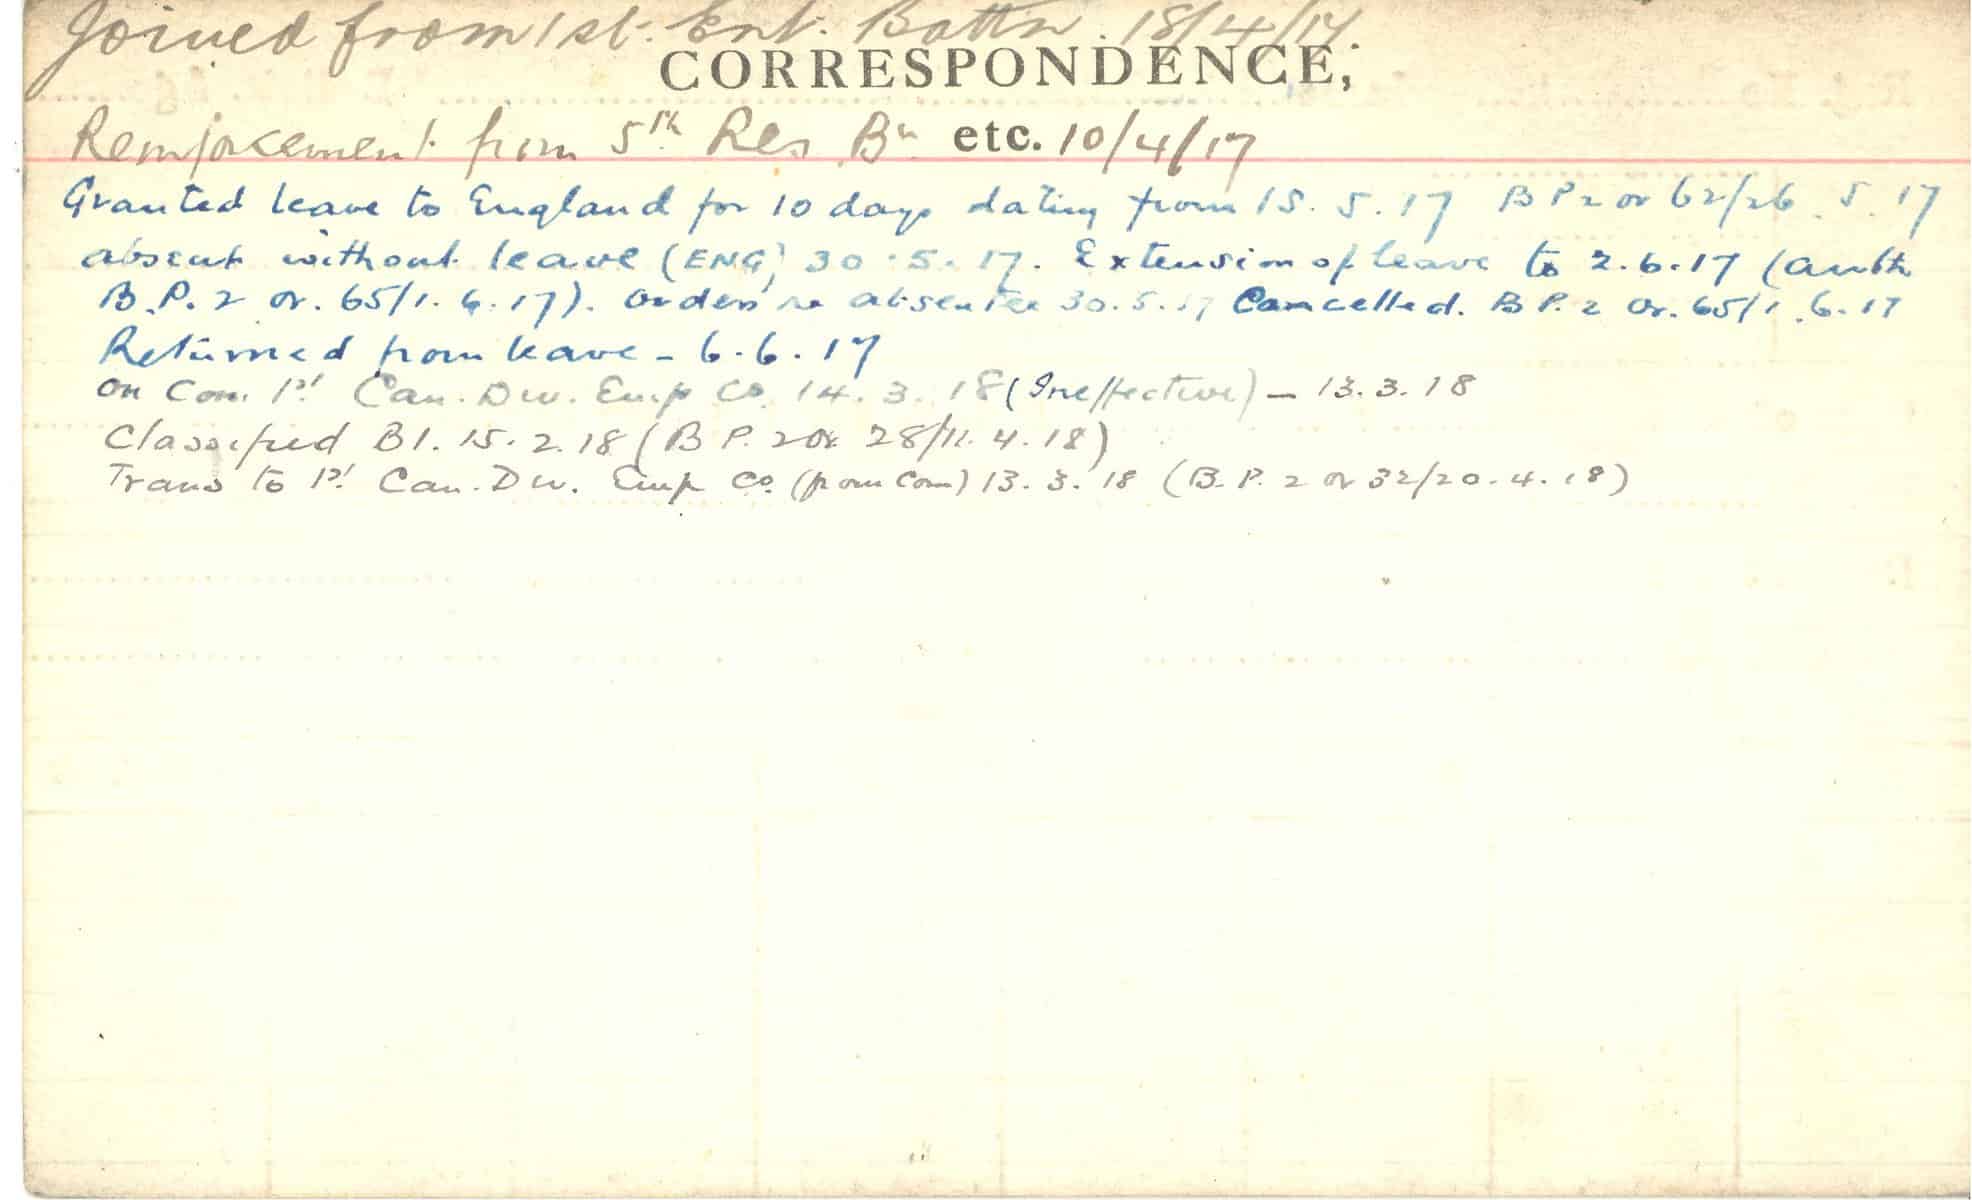 Joined from 1st. Ent. Battn. 18/4/17.
CORRESPONDENCE,
Reinforcement from 5th Res Bn etc. 10/4/17
Granted leave to England for 10 days dating from 15.5.17 B P 2 or 62/26.5.17
absent without leave (ENG) 30.5.17. Extension of leave to 2.6.17 (auth
B.P.2 or. 65/1.6.17). Orders re absentee 30.5.17 Cancelled. B P. 2 Or. 65/1.6.17
Returned from leave - 6.6.17
On Com. 1st Can. Div. Emp Co. 14.3.18 (Ineffective) - 13.3.18
Classified B1. 15.2.18 (B P. 2 Or 28/11.4.18)
Trans to 1st Can. Div. Emp Co. (from Com) 13.3.18 (B.P. 2 or 32/20.4.18)